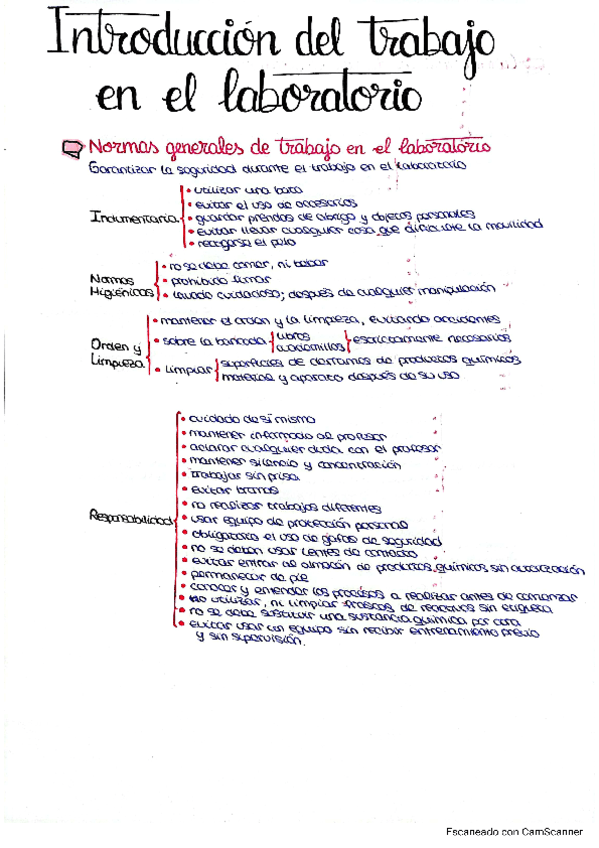 Introducción del trabajo
en el laboratorio
Normas generales de trabajo en el laboratorio
Garantizar la seguridad durante el trabajo en el laboratorio
Indumentaria
• utilizar una bata
• evitar el uso de accesorios
• guardar prendas de abrigo y objetos personales
• evitar llevar cualquier cosa que dificulte la movilidad
• recogerse el pelo
Normas
Higiénicas
• no se debe comer, ni beber
• prohibido fumar
• lavado cuidadoso; después de cualquier manipulación
Orden y
Limpieza
• mantener el orden y la limpieza, evitando accidentes
• sobre la bancada libros cuadernillos estrictamente necesarios
• limpiar superficies de derrames de productos químicos
material y aparato después de su uso
Responsabilidad
• cuidado de sí mismo
• mantener informado al profesor
• aclarar cualquier duda con el profesor
• mantener silencio y concentración
• trabajar sin prisa
• evitar bromas
• no realizar trabajos diferentes
• usar equipo de protección personal
• obligatorio el uso de gafas de seguridad
• no se deben usar lentes de contacto
• evitar entrar al almacén de productos químicos sin autorización
• permanecer de pie
• conocer y entender los procesos a realizar antes de comenzar
• no utilizar, ni limpiar frascos de reactivos sin etiqueta
• no se debe sustituir una sustancia química por otra
• evitar usar un equipo sin recibir entrenamiento previo
y sin supervisión.
Escaneado con CamScanner